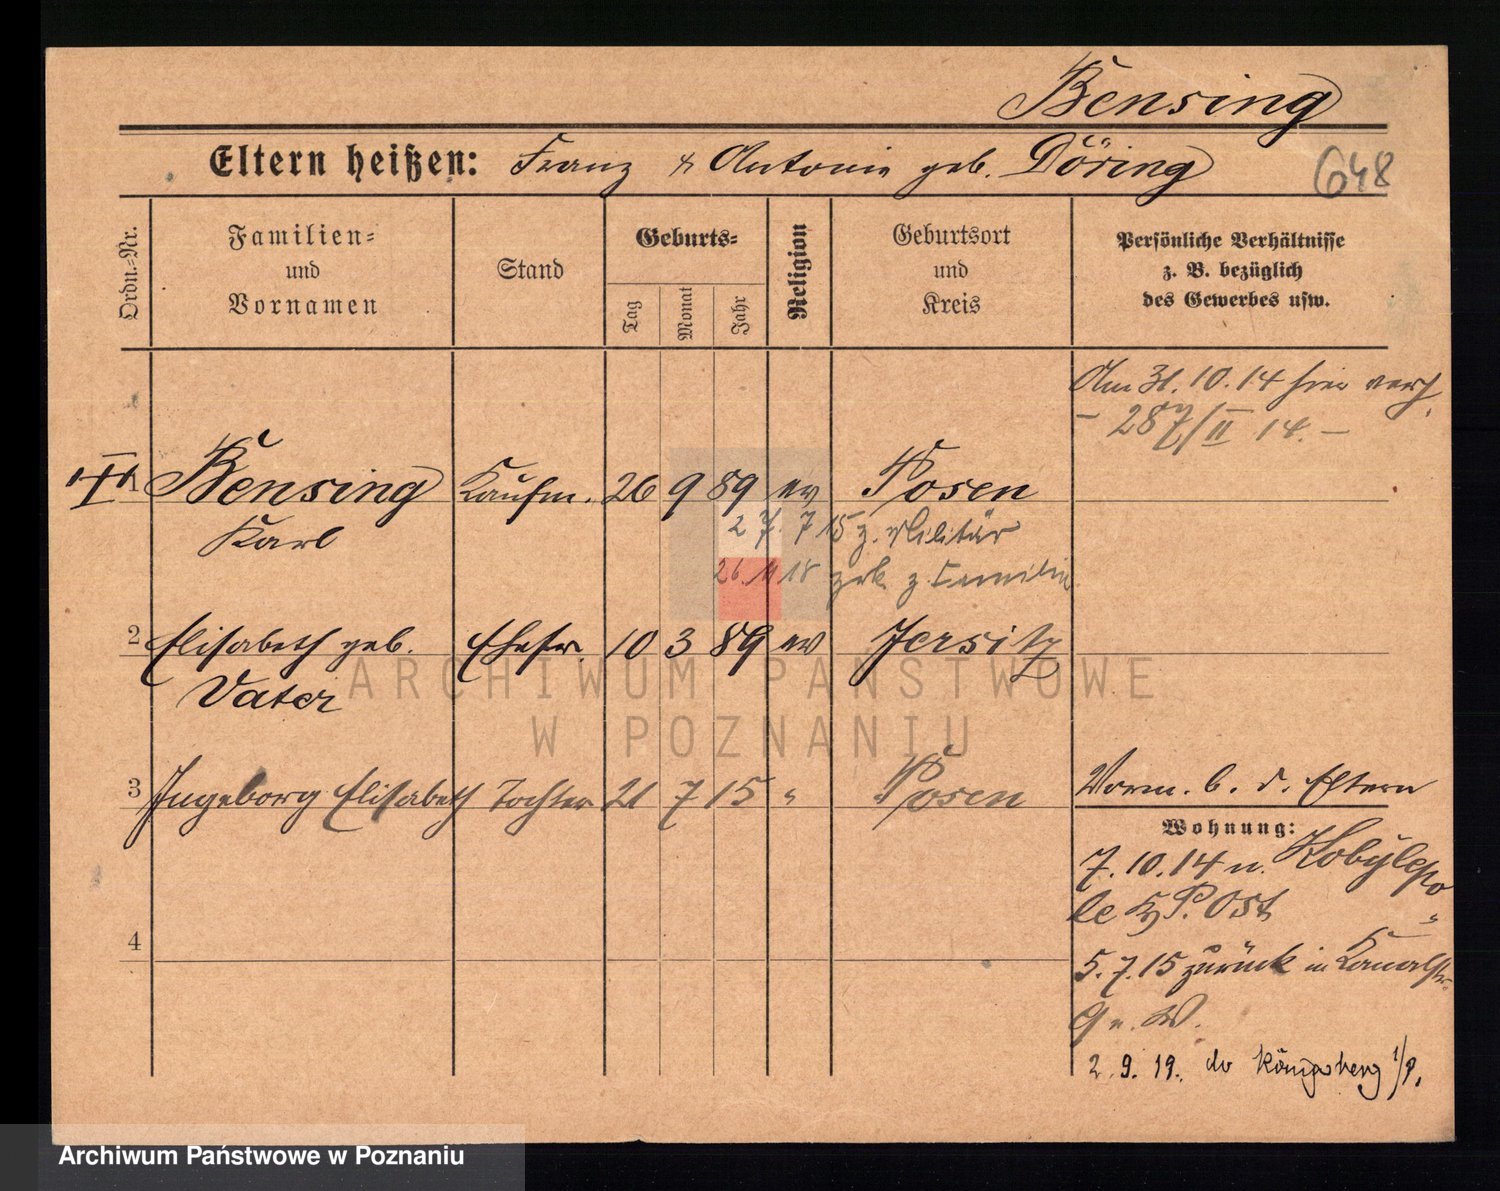 Bensing
Eltern heißen: Franz & Antonie geb. Döring
648
Ordn.-Nr.
Familien-
und
Vornamen
Stand
Geburts-
Tag
Monat
Jahr
Religion
Geburtsort
und
Kreis
Persönliche Verhältnisse
z. B. bezüglich
des Gewerbes usw.
Am 31.10.14 hier verh.
- 287/II 14. -
1 Bensing Kaufm. 26 9 89 ev Posen
Karl
27. 7 15 z. Militär
26. 11 18 zrk z. Familie
2 Elisabeth geb. Ehefr. 10 3 89 ev Jersitz
Vater
ARCHIWUM PAŃSTWOWE
W POZNANIU
3 Ingeborg Elisabeth Tochter 21 7 15 " Posen
Vorm. b. d. Eltern
Wohnung:
7.10.14 n. Kobylepo
le P. Ost
4
5.7.15 zurück in Kanalstr.
9 n. W.
2.9.19. Königsberg i/P.
Archiwum Państwowe w Poznaniu